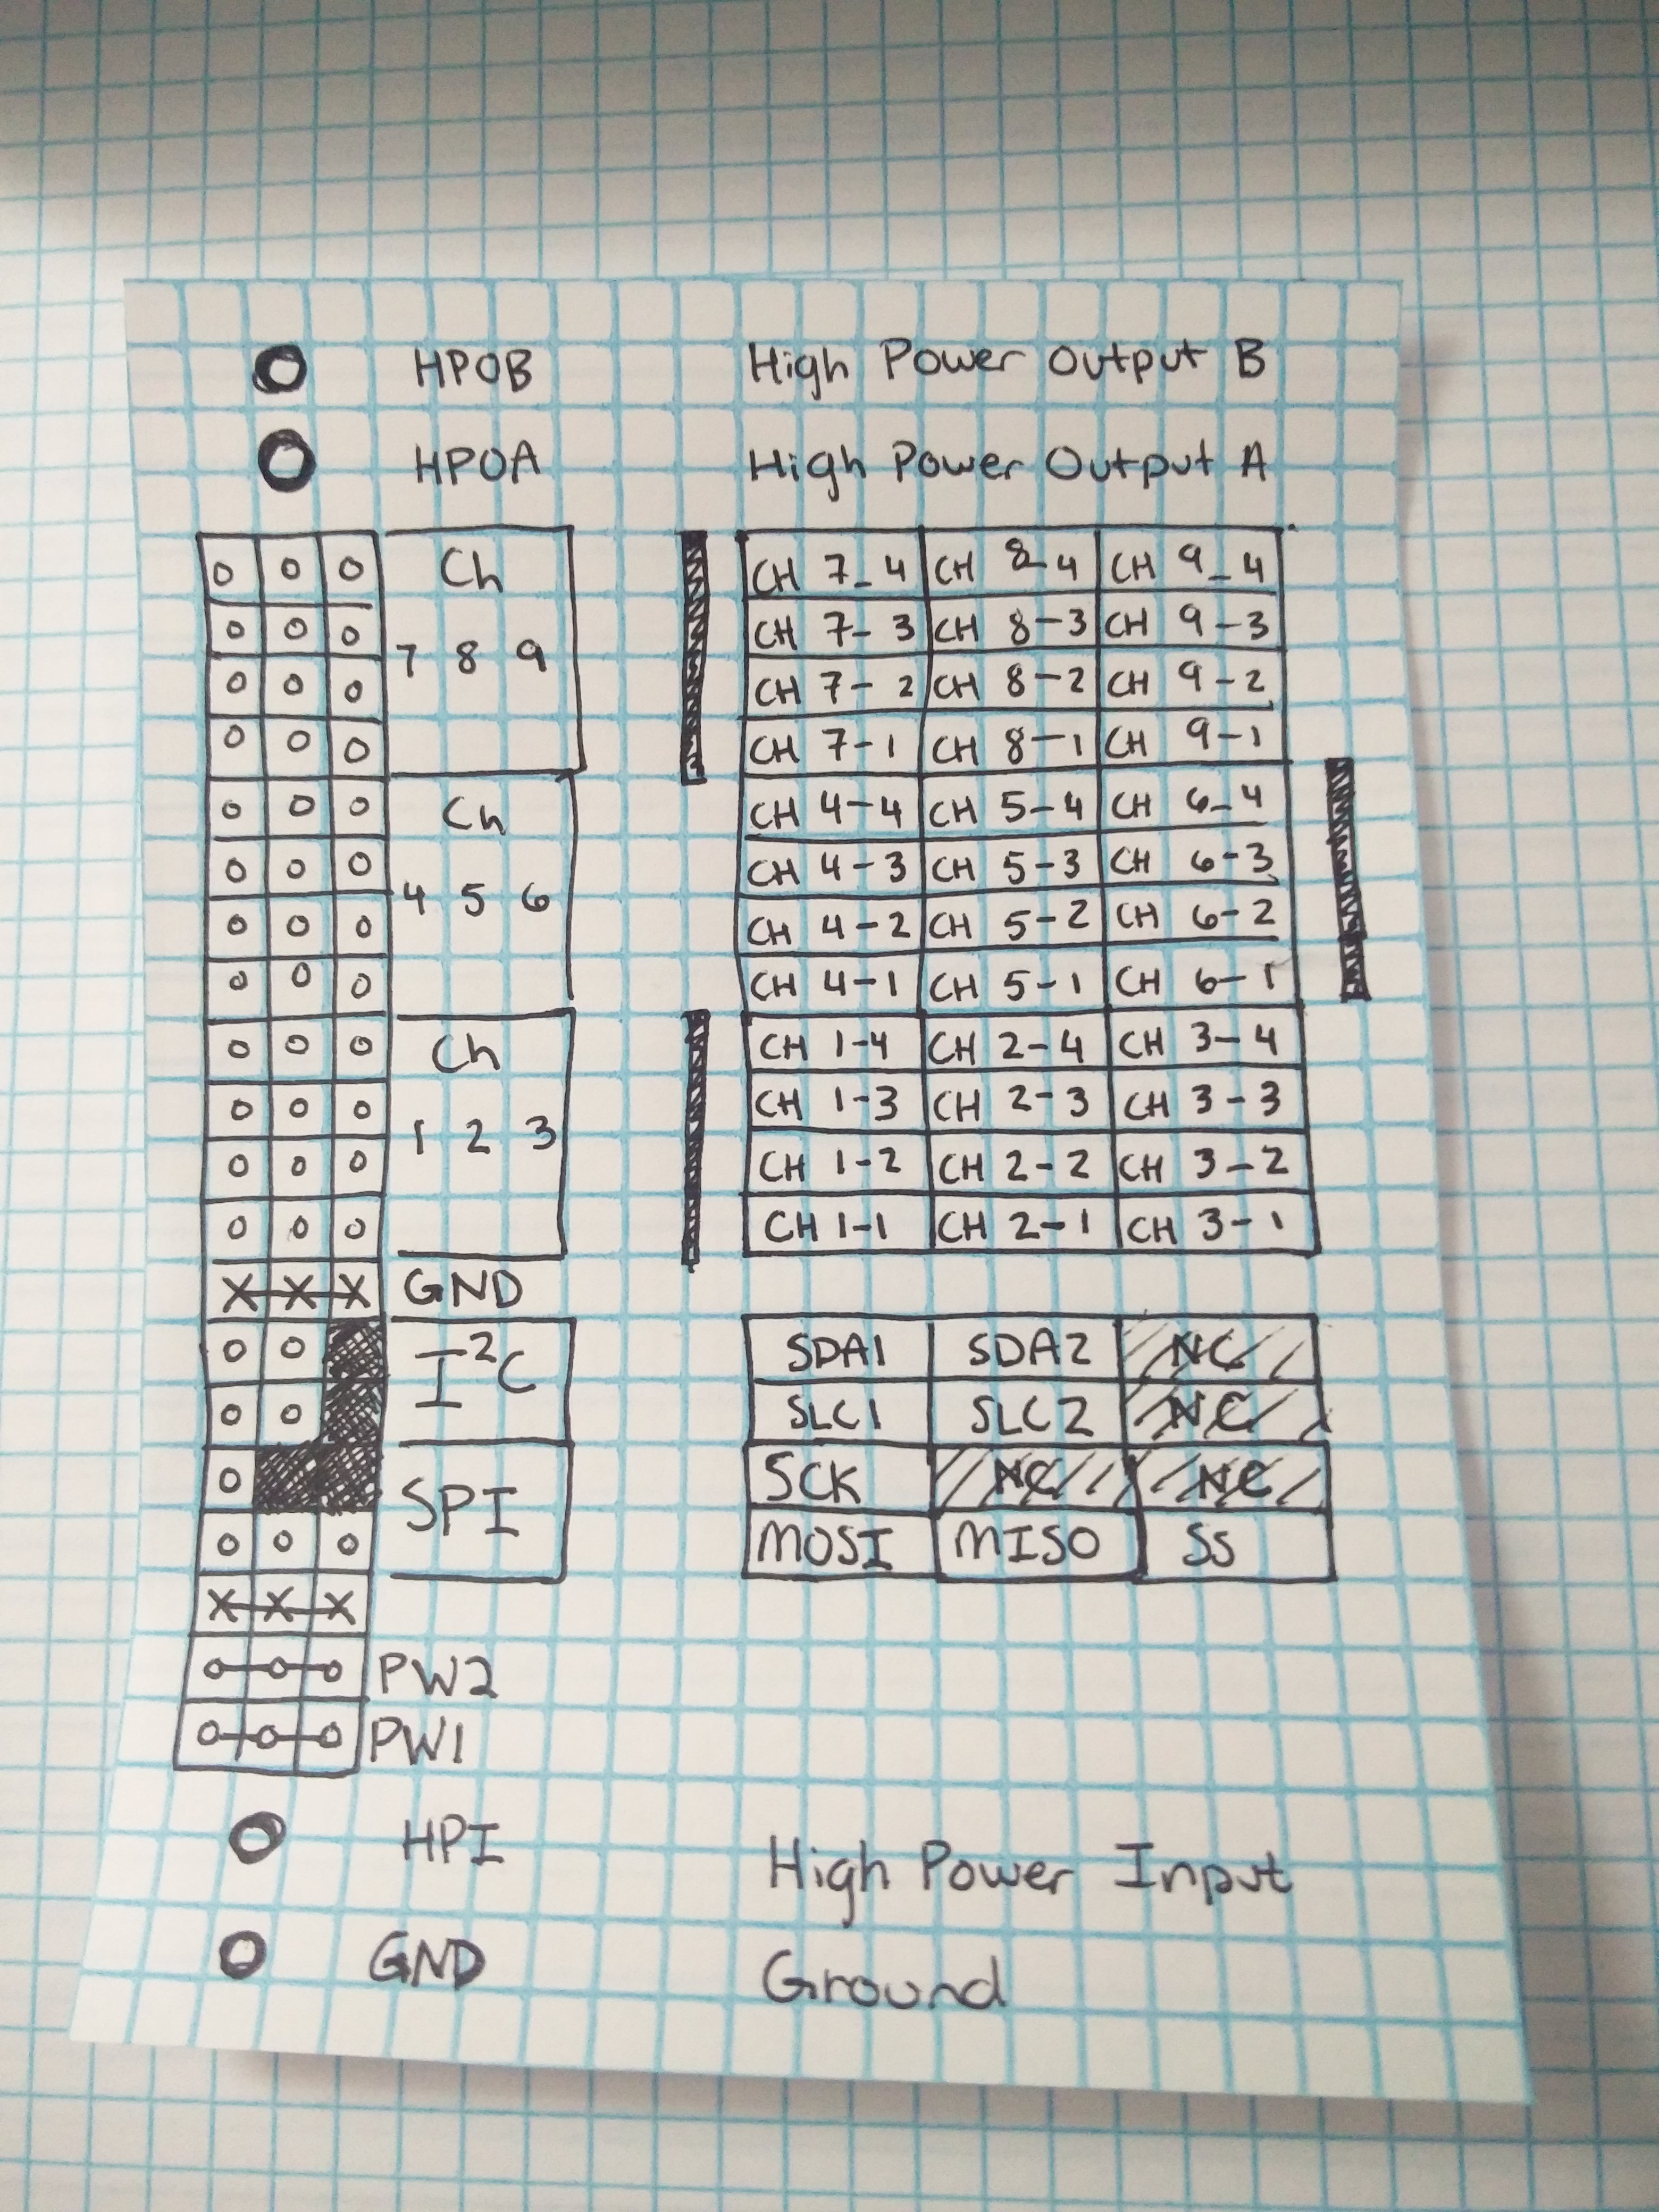 HPOB High Power Output B
HPOA High Power Output A
Ch
7 8 9
CH 7-4 CH 8-4 CH 9-4
CH 7-3 CH 8-3 CH 9-3
CH 7-2 CH 8-2 CH 9-2
CH 7-1 CH 8-1 CH 9-1
Ch
4 5 6
CH 4-4 CH 5-4 CH 6-4
CH 4-3 CH 5-3 CH 6-3
CH 4-2 CH 5-2 CH 6-2
CH 4-1 CH 5-1 CH 6-1
Ch
1 2 3
CH 1-4 CH 2-4 CH 3-4
CH 1-3 CH 2-3 CH 3-3
CH 1-2 CH 2-2 CH 3-2
CH 1-1 CH 2-1 CH 3-1
X X X GND
I²C
SDA1 SDA2 NC
SLC1 SLC2 NC
SPI
SCK NC NC
MOSI MISO SS
X X X
PW2
PW1
HPI High Power Input
GND Ground